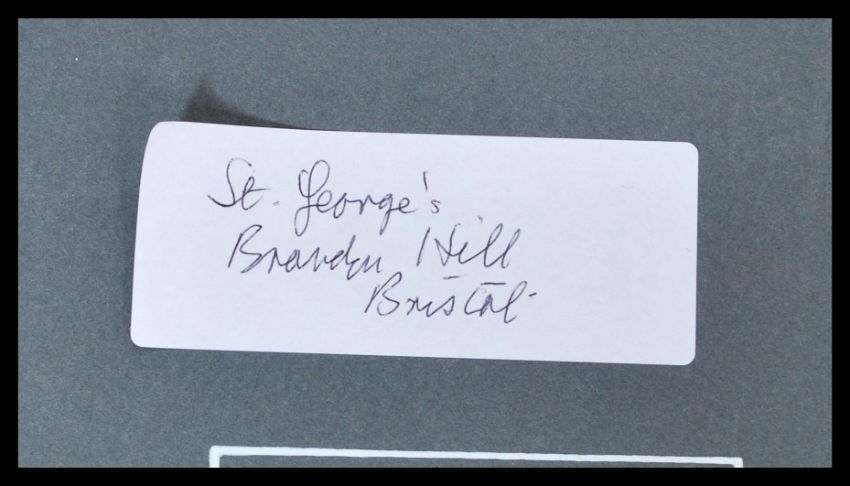 St. George's
Brandon Hill
Bristol